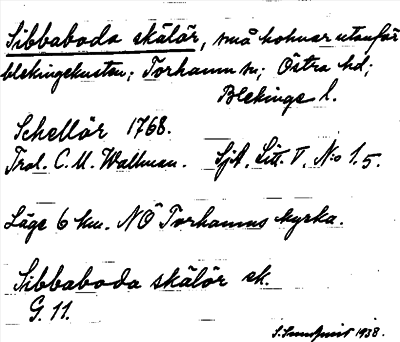 Sibbaboda skälör, små holmar utanför
blekingekusten; Torhamn sn; Östra hd;
Blekinge l.
Schellör 1768.
Trol. C. U. Wallman. Sjk. Litt. V, N:o 1.5.
Läge 6 km. NÖ Torhamns kyrka.
Sibbaboda skälör ek.
G. 11.
S. Sundquist 1938.